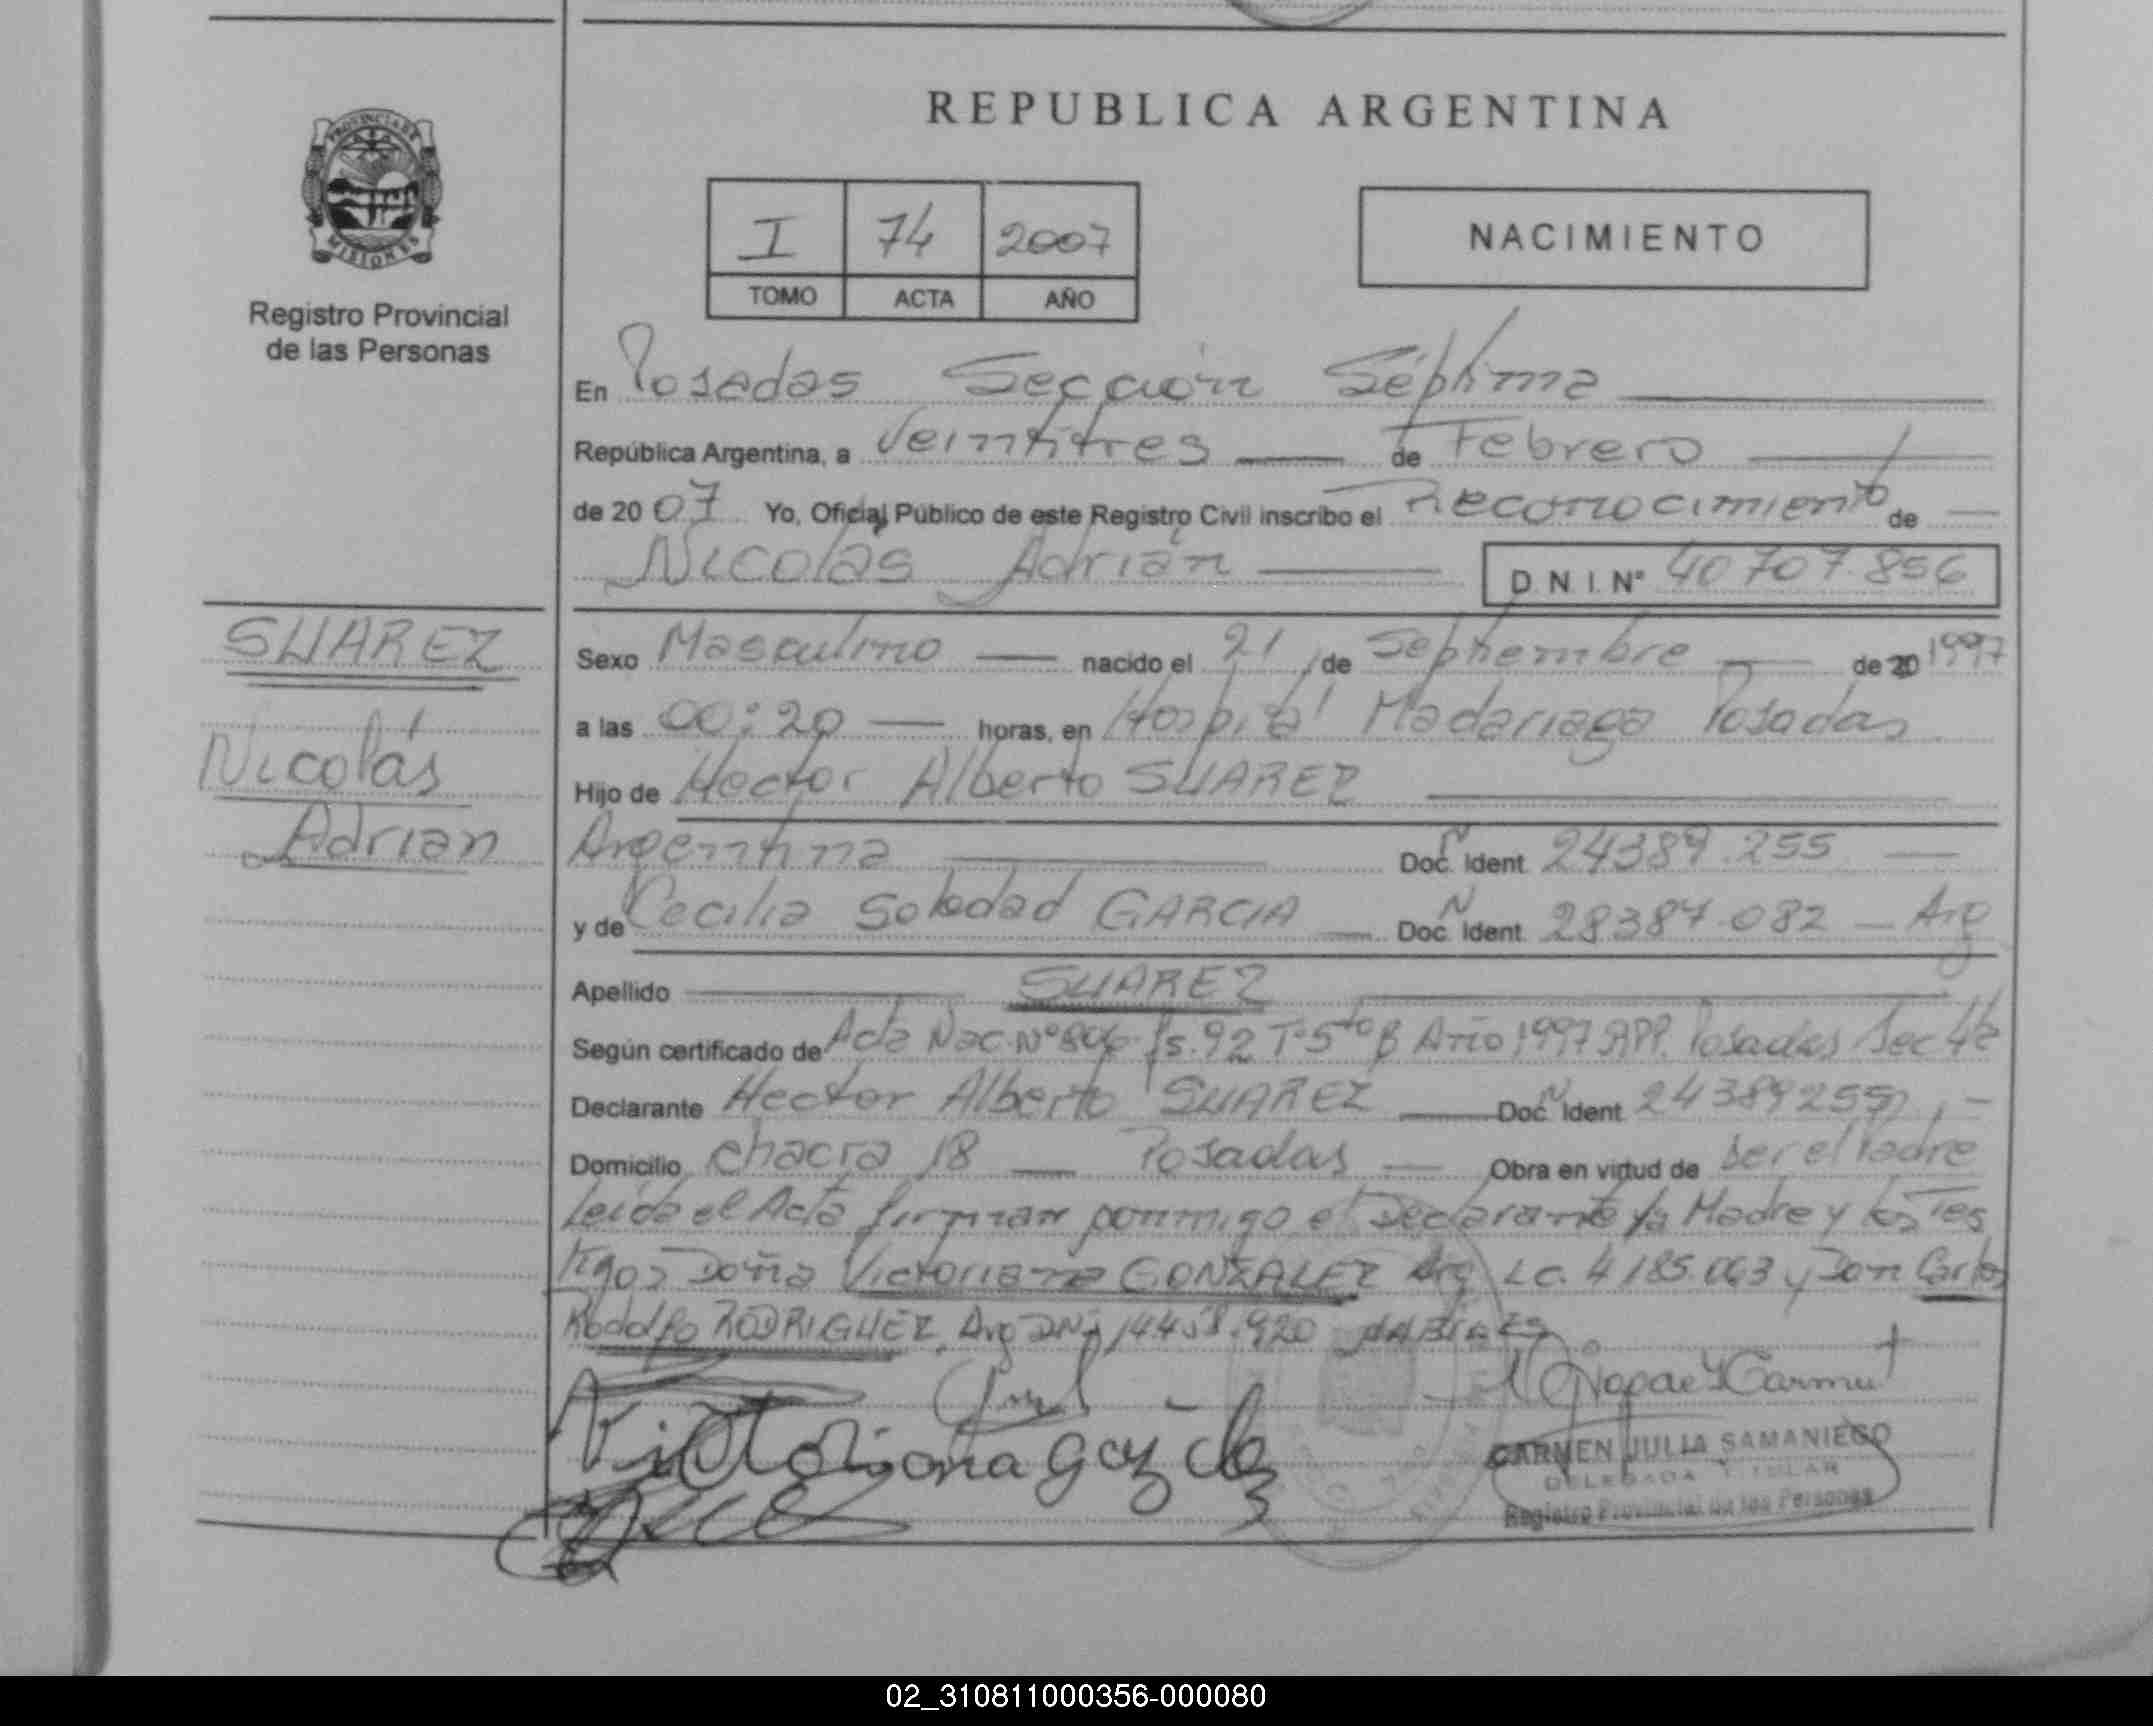 REPUBLICA ARGENTINA
PROVINCIA DE
MISIONES
Registro Provincial
de las Personas
I 74 2007
TOMO ACTA AÑO
NACIMIENTO
En Posadas Sección Séptima
República Argentina, a Veintitres de Febrero
de 20 07 Yo, Oficial Público de este Registro Civil inscribo el Reconocimiento de
Nicolás Adrián D.N.I. Nº 40707.856
SUAREZ
Nicolás
Adrian
Sexo Masculino nacido el 21 de Septiembre de 20 1997
a las 00:20 horas, en Hospital Madariaga Posadas
Hijo de Hector Alberto SUAREZ
Argentina Doc. Ident. 24389.255
y de Cecilia Soledad GARCIA Doc. Ident. 28387.082 Arg
Apellido SUAREZ
Según certificado de Acta Nac. Nº 806 fs. 92 Tº 5to B Año 1997 RPP. Posadas Sec 4ª
Declarante Hector Alberto SUAREZ Doc. Ident. 24389255
Domicilio chacra 18 Posadas Obra en virtud de ser el Padre
Leída el Acta firman conmigo el Declarante la Madre y los Tes
tigos Doña Victoriana GONZALEZ Arg LC. 4185.063 y Don Carlos
Rodolfo RODRIGUEZ Arg DNI
CARMEN JULIA SAMANIEGO
DELEGADA TITULAR
Registro Provincial de las Personas
02_310811000356-000080